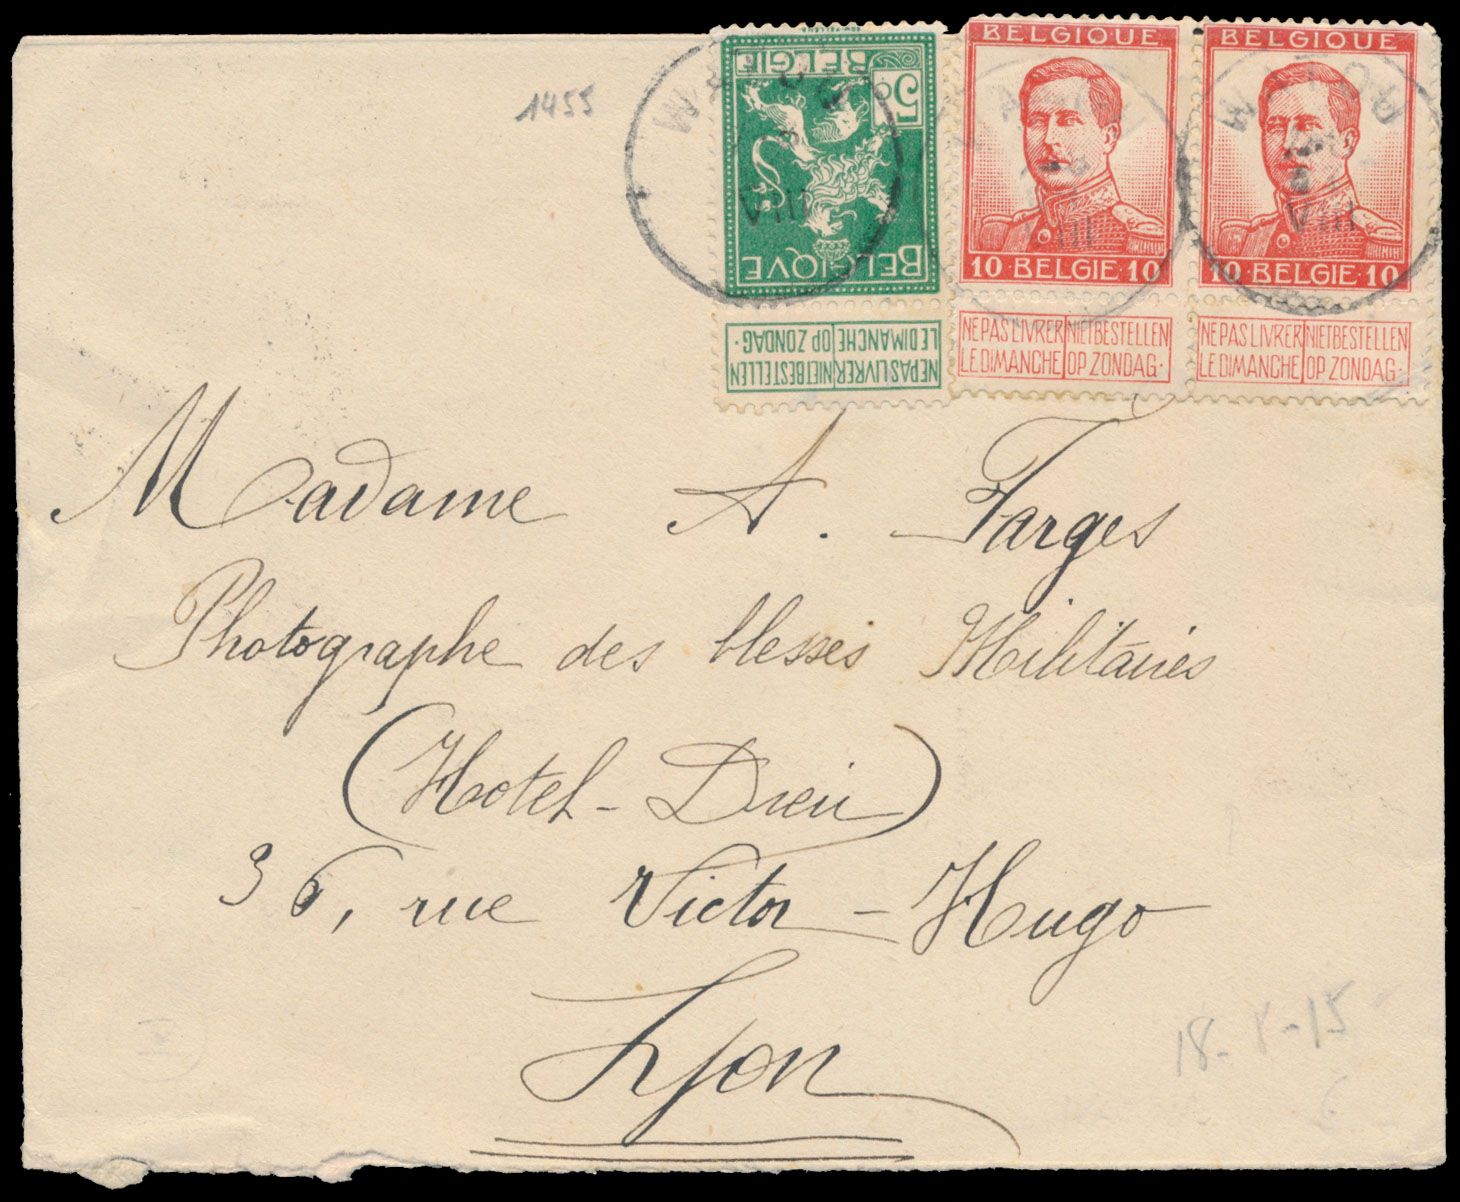 1455
5c
BELGIE
BELGIQVE
NE PAS LIVRER NIET BESTELLEN
LE DIMANCHE OP ZONDAG.
BELGIQUE
10 · BELGIE · 10
NE PAS LIVRER NIET BESTELLEN
LE DIMANCHE OP ZONDAG.
BELGIQUE
10 · BELGIE · 10
NE PAS LIVRER NIET BESTELLEN
LE DIMANCHE OP ZONDAG.
WATOU
VIII
WATOU
VIII
Madame A. Farges
Photographe des blessés Militaires
(Hotel-Dieu)
36, rue Victor-Hugo
Lyon
18-8-15
6